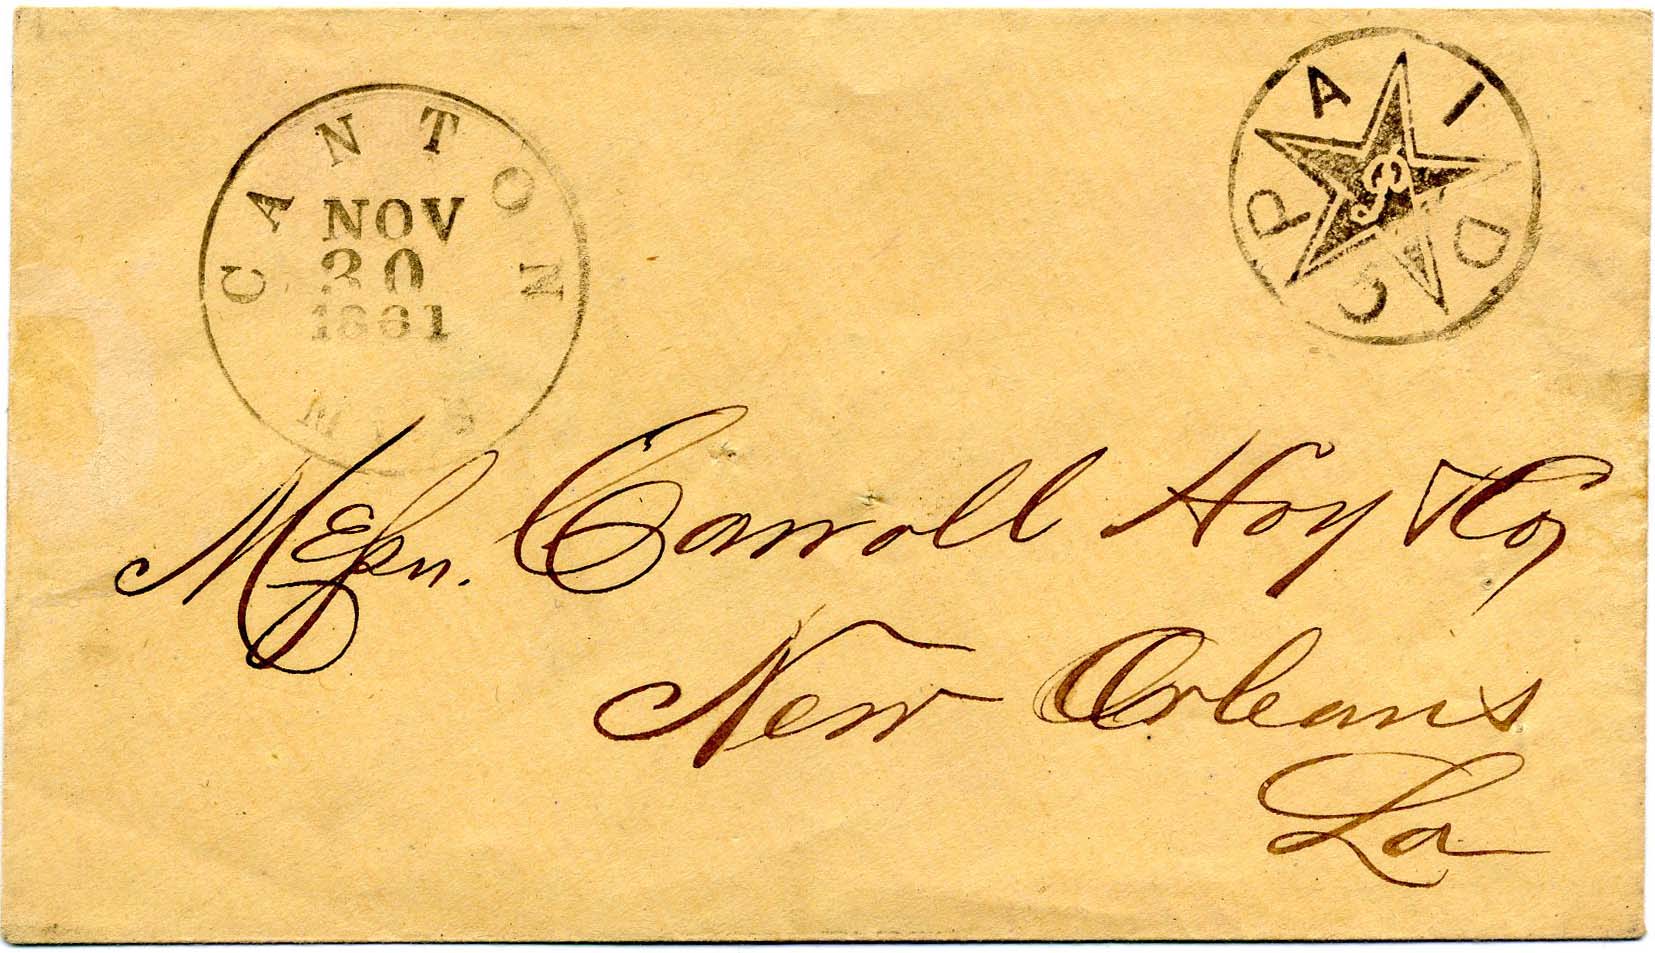 CANTON
NOV
30
1861
MIS
PAID 5
P
Messrs. Carroll Hoy & Co,
New Orleans
La